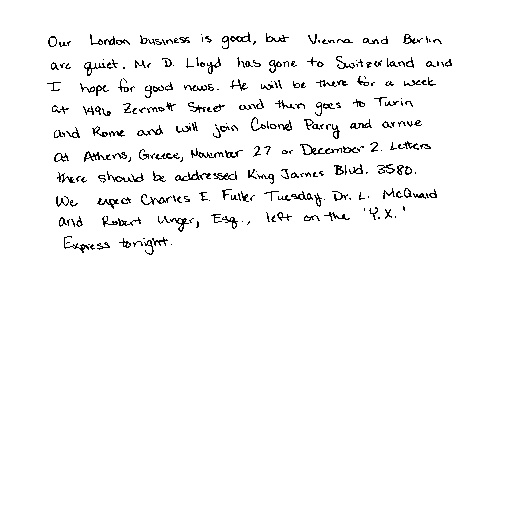 Our London business is good, but Vienna and Berlin
are quiet. Mr D. Lloyd has gone to Switzerland and
I hope for good news. He will be there for a week
at 1496 Zermott Street and then goes to Turin
and Rome and will join Colonel Parry and arrive
at Athens, Greece, November 27 or December 2. Letters
there should be addressed King James Blvd. 3580.
We expect Charles E. Fuller Tuesday. Dr. L. McQuaid
and Robert Unger, Esq., left on the 'Y.X.'
Express tonight.